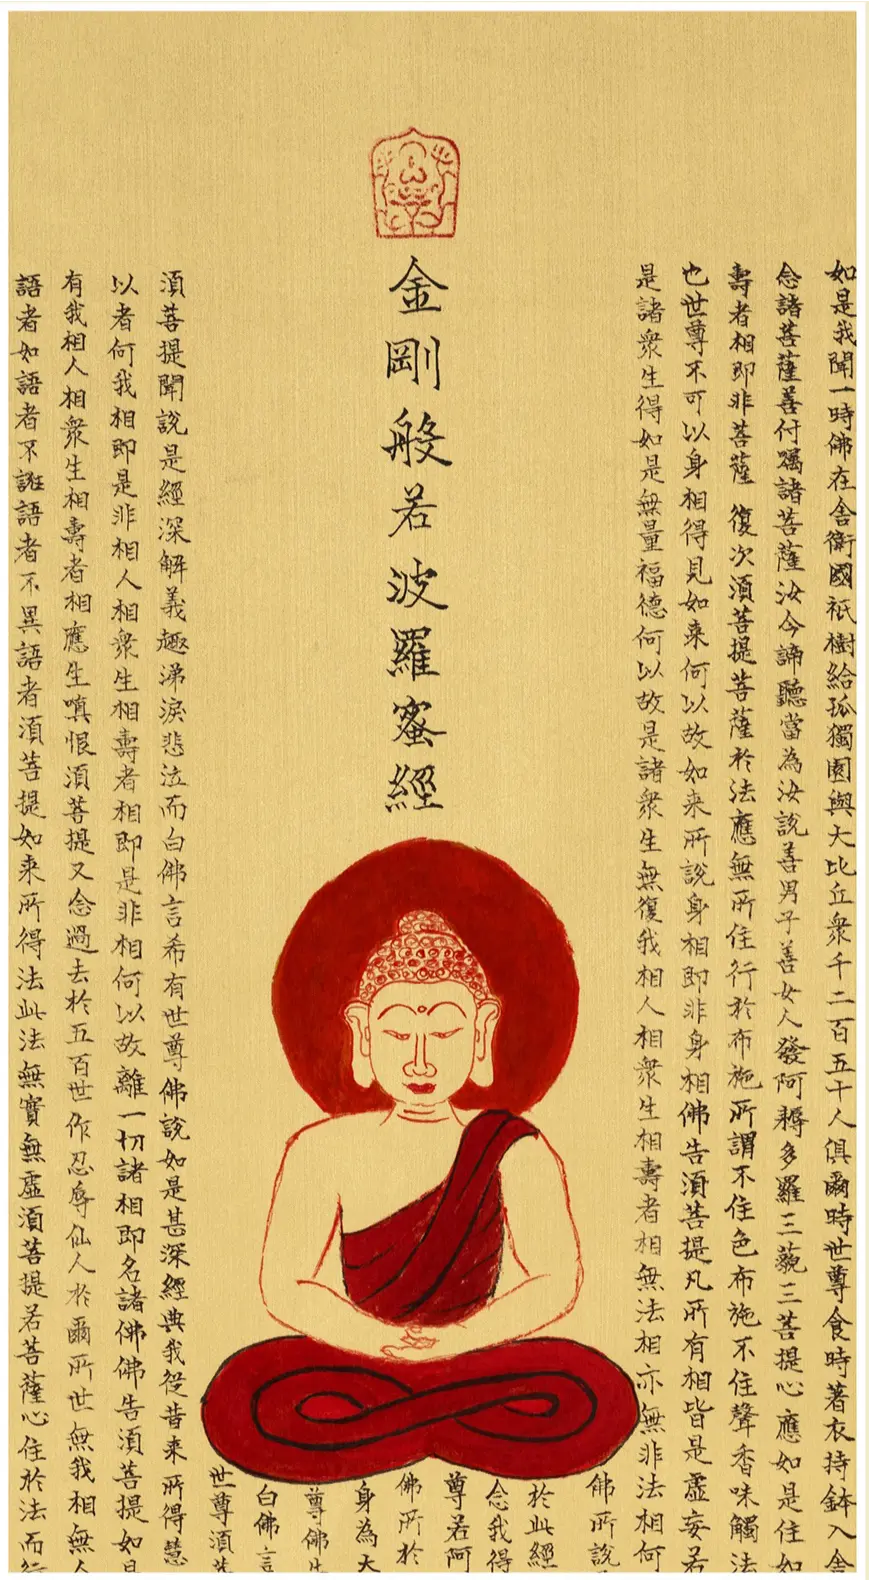 金剛般若波羅蜜經
如是我聞一時佛在舍衛國祇樹給孤獨園與大比丘衆千二百五十人俱爾時世尊食時著衣持鉢入舍
念諸菩薩善付囑諸菩薩汝今諦聽當為汝說善男子善女人發阿耨多羅三藐三菩提心應如是住如
壽者相即非菩薩 復次須菩提菩薩於法應無所住行於布施所謂不住色布施不住聲香味觸法
也世尊不可以身相得見如来何以故如来所說身相即非身相佛告須菩提凡所有相皆是虛妄若
是諸衆生得如是無量福德何以故是諸衆生無復我相人相衆生相壽者相無法相亦無非法相何
佛所說
於此經
念我得
尊若阿
佛所於
身為大
尊佛
白佛言
世尊須
須菩提聞說是經深解義趣涕淚悲泣而白佛言希有世尊佛說如是甚深經典我從昔来所得慧
以者何我相即是非相人相衆生相壽者相即是非相何以故離一切諸相即名諸佛佛告須菩提如是
有我相人相衆生相壽者相應生嗔恨須菩提又念過去於五百世作忍辱仙人於爾所世無我相無人
語者如語者不誑語者不異語者須菩提如来所得法此法無實無虛須菩提若菩薩心住於法而行